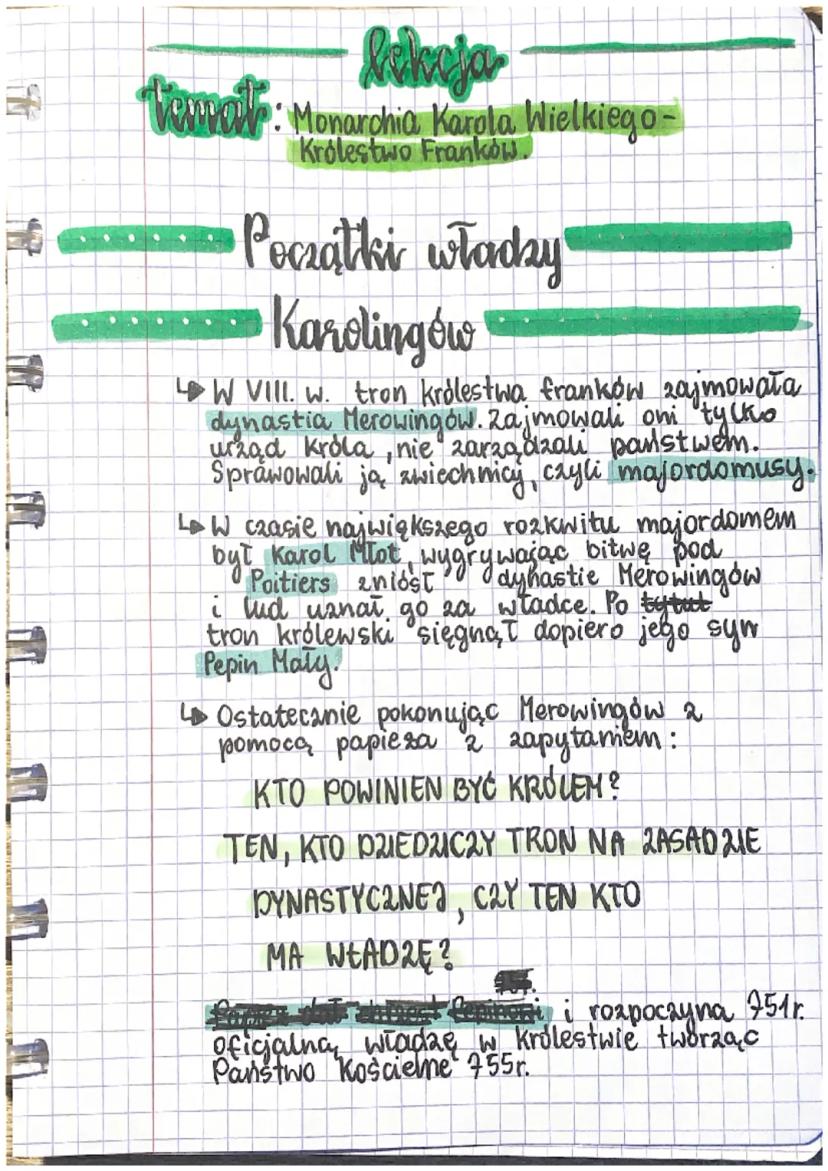 lekcja
temat: Monarchia Karola Wielkiego -
Królestwo Franków.
Początki władzy
Karolingów
↳ W VIII. w. tron królestwa franków zajmowała
dynastia Merowingów. Zajmowali oni tylko
urząd króla, nie zarządzali państwem.
Sprawowali ją zwiechnicy, czyli majordomusy.
↳ W czasie największego rozkwitu majordomem
był Karol Młot, wygrywając bitwę pod
Poitiers zniósł dynastie Merowingów
i lud uznał go za władce. Po tytuł
tron królewski sięgnął dopiero jego syn
Pepin Mały.
↳ Ostatecznie pokonując Merowingów z
pomocą papieża z zapytaniem:
KTO POWINIEN BYĆ KRÓLEM?
TEN, KTO DZIEDZICZY TRON NA ZASADZIE
DYNASTYCZNEJ, CZY TEN KTO
MA WŁADZĘ?
i rozpoczyna 751r.
oficjalną władzę w Królestwie tworząc
Państwo Kościelne 755r.